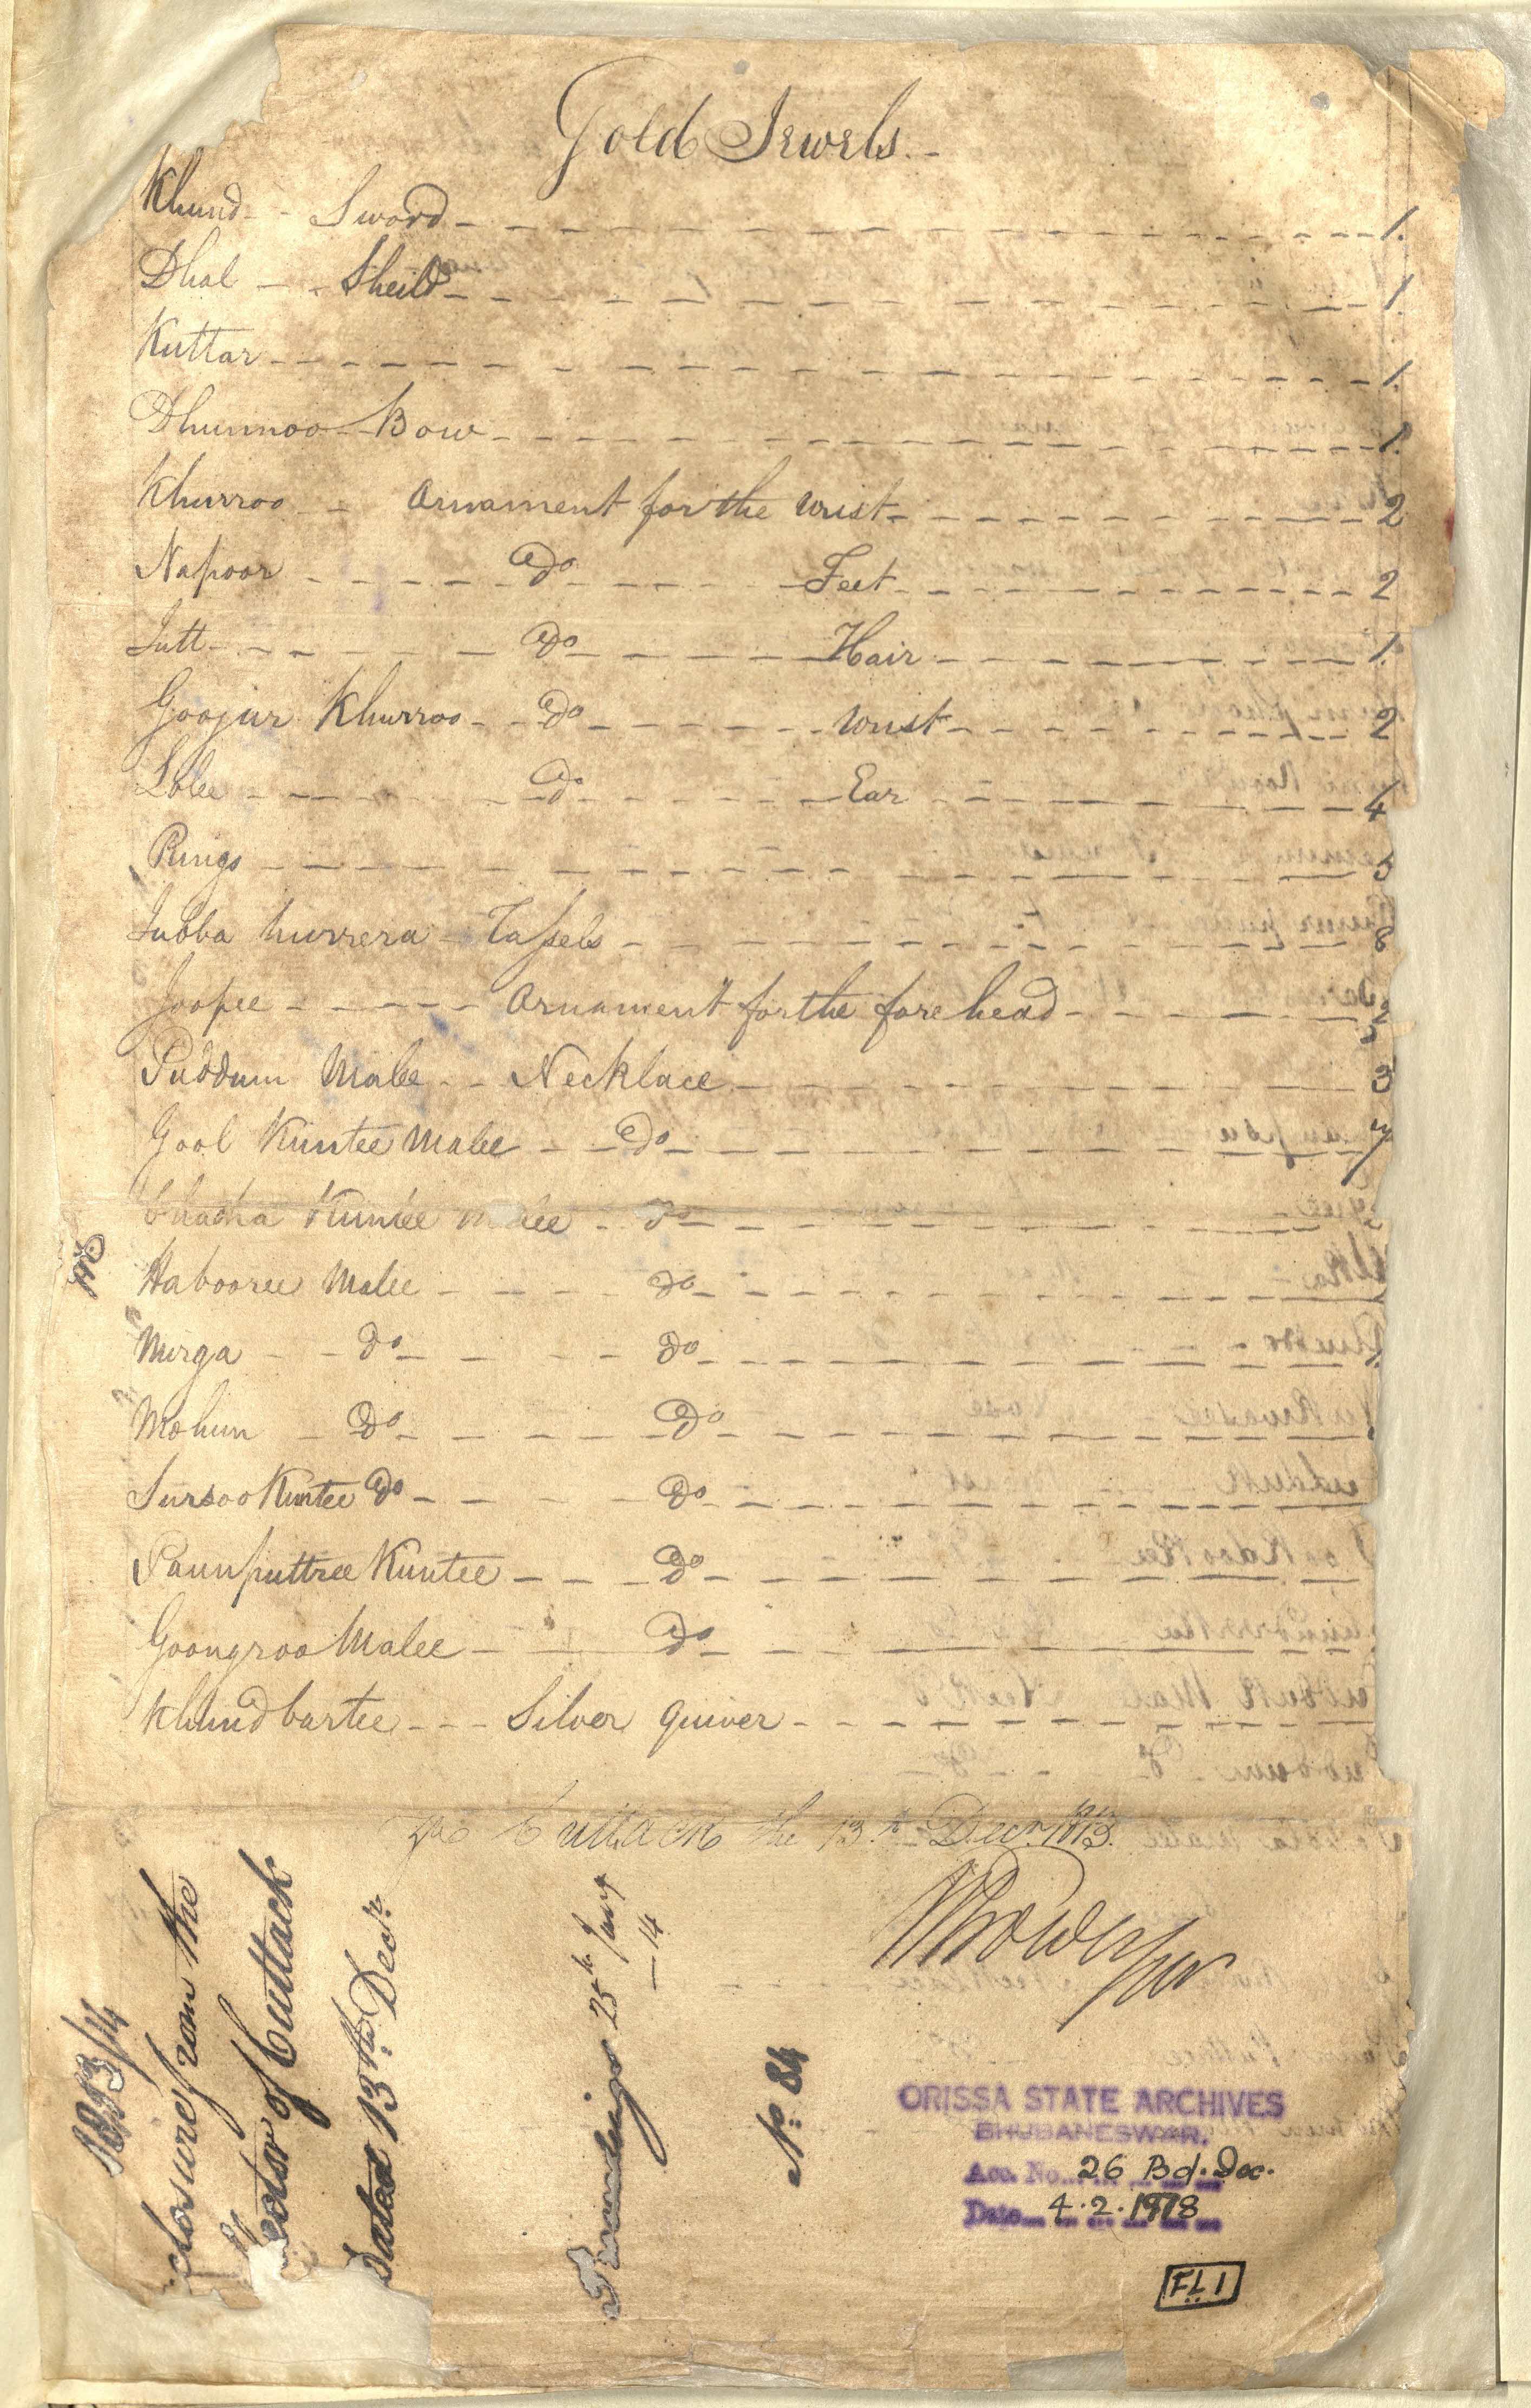 Gold Jewels.
Khund - Sword 1.
Dhal - Sheild 1.
Kuttar 1.
Dhunnoo Bow 1.
Khurroo - Ornament for the wrist 2
Napoor Do Feet 2
Jutt Do Hair 1.
Goojur Khurroo Do wrist 2
Lolee Do Ear 4
Rings 5
Jubba hurrera Tassels 8
Joopee Ornament for the forehead 2
Puddum Malee Necklace 3
Gool Kuntee Malee Do 7
Kuntee Do
Habooree Malee Do
Mirga Do Do
Mohun Do Do
Sursoo Kuntee Do Do
Paunputtree Kuntee Do
Goongroo Malee Do
Khund bartee Silver quiver
Cuttack the 13th Decr. 1813.
1813/14
closure from the
ector of Cuttack
Dated 13th Decr.
25th Jany
14
No. 84
ORISSA STATE ARCHIVES
BHUBANESWAR.
Acc. No. 26 Bd. Doc.
Date 4.2.1978
FL 1